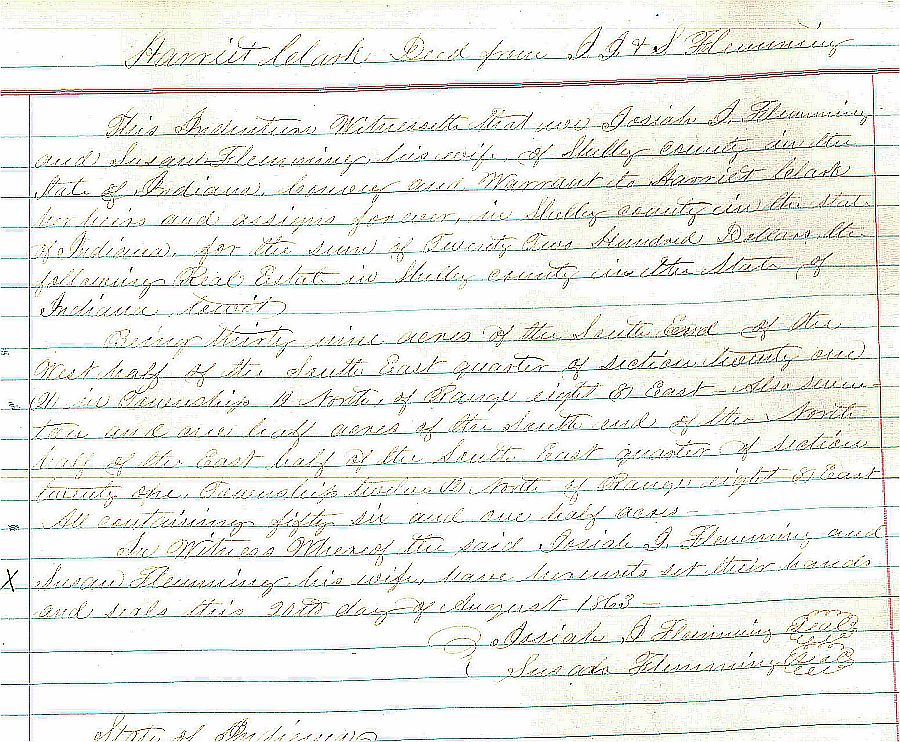 Harriet Clark Deed from J J & S Flemming
This Indenture Witnesseth that we Josiah J. Flemming
and Susan Flemming his wife, of Shelby county in the
State of Indiana, Convey and Warrant to Harriet Clark
her heirs and assigns forever, in Shelby county in the state
of Indiana, for the sum of Twenty Two Hundred Dollars the
following Real Estate in Shelby county in the State of
Indiana, towit
Being thirty nine acres of the South End of the
West half of the South East quarter of section twenty one
(21 in Township 12 North, of Range eight 8) East – Also seven-
teen and one half acres of the South end of the North
half of the East half of the South East quarter of section
twenty one, Township twelve 12 North of Range eight 8) East
All containing fifty six and one half acres –
In Witness Whereof the said Josiah J. Flemming and
X Susan Flemming his wife, have hereunto set their hands
and seals this 20th day of August 1863 –
Josiah J Flemming Seal
Susan Flemming Seal
State of Indiana